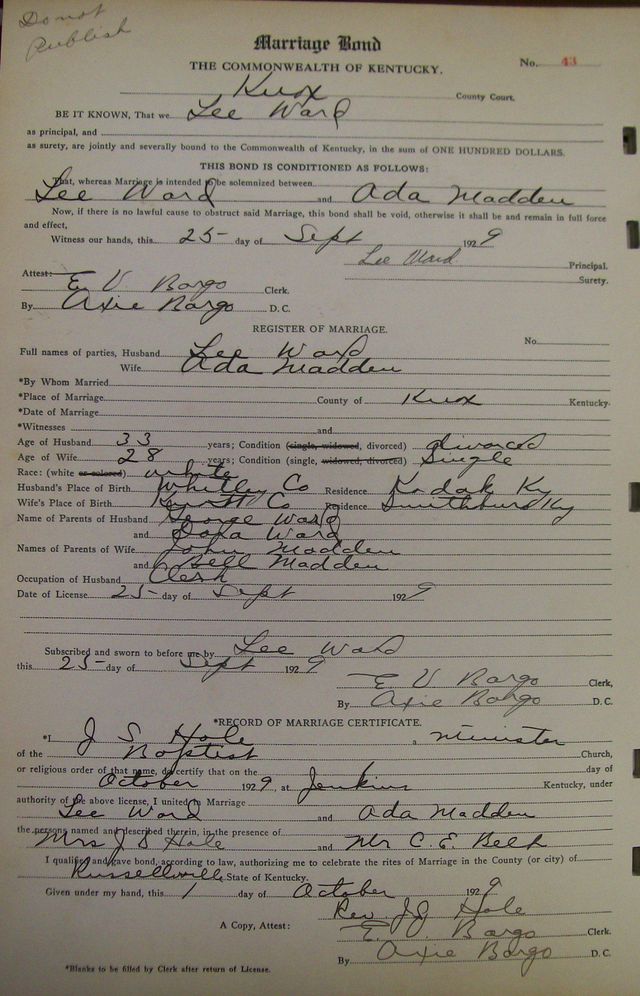 Do not
Publish
Marriage Bond
THE COMMONWEALTH OF KENTUCKY.
No. 43
Knox County Court.
BE IT KNOWN, That we Lee Ward
as principal, and
as surety, are jointly and severally bound to the Commonwealth of Kentucky, in the sum of ONE HUNDRED DOLLARS.
THIS BOND IS CONDITIONED AS FOLLOWS:
That, whereas Marriage is intended to be solemnized between
Lee Ward and Ada Madden
Now, if there is no lawful cause to obstruct said Marriage, this bond shall be void, otherwise it shall be and remain in full force
and effect,
Witness our hands, this 25 day of Sept 1929
Lee Ward Principal.
Surety.
Attest:
E V Bargo Clerk.
By Axie Bargo D. C.
REGISTER OF MARRIAGE.
No.
Full names of parties, Husband Lee Ward
Wife Ada Madden
*By Whom Married
*Place of Marriage County of Knox Kentucky.
*Date of Marriage
*Witnesses and
Age of Husband 33 years; Condition (single, widowed, divorced) divorced
Age of Wife 28 years; Condition (single, widowed, divorced) Single
Race: (white or colored) white
Husband's Place of Birth Whitley Co Residence Kodak Ky
Wife's Place of Birth Co Residence Ky
Name of Parents of Husband George Ward
and Dora Ward
Names of Parents of Wife John Madden
and Bell Madden
Occupation of Husband Clerk
Date of License 25 day of Sept 1929
Subscribed and sworn to before me by Lee Ward
this 25 day of Sept 1929
E V Bargo Clerk,
By Axie Bargo D. C.
*RECORD OF MARRIAGE CERTIFICATE.
*I J S Hole a minister
of the Baptist Church,
or religious order of that name, do certify that on the day of
October 1929, at Jenkins Kentucky, under
authority of the above license, I united in Marriage
Lee Ward and Ada Madden
the persons named and described therein, in the presence of
Mrs J S Hole and Mr C. E. Belk
I qualified and gave bond, according to law, authorizing me to celebrate the rites of Marriage in the County (or city) of
Russellville State of Kentucky.
Given under my hand, this 1 day of October 1929
Rev. J S Hole
A Copy, Attest: E. V. Bargo Clerk.
By Axie Bargo D. C.
*Blanks to be filled by Clerk after return of License.